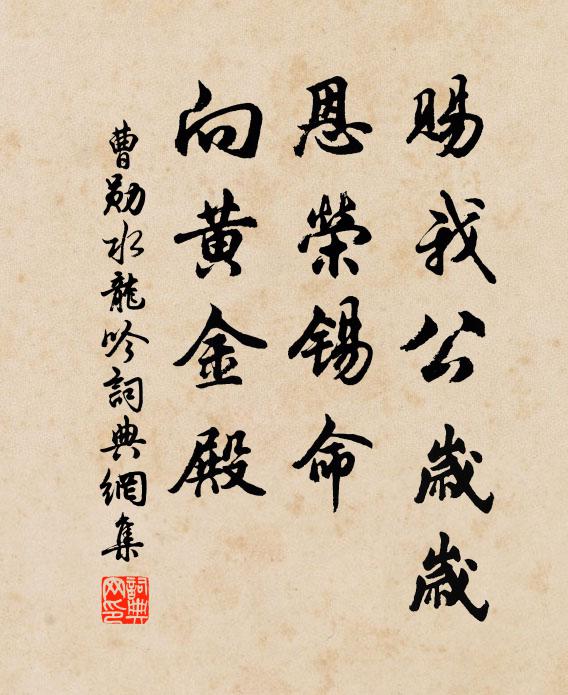 賜我公歲歲
恩榮錫命
向黃金殿
曹勛水龍吟詞典網集
詞典網印